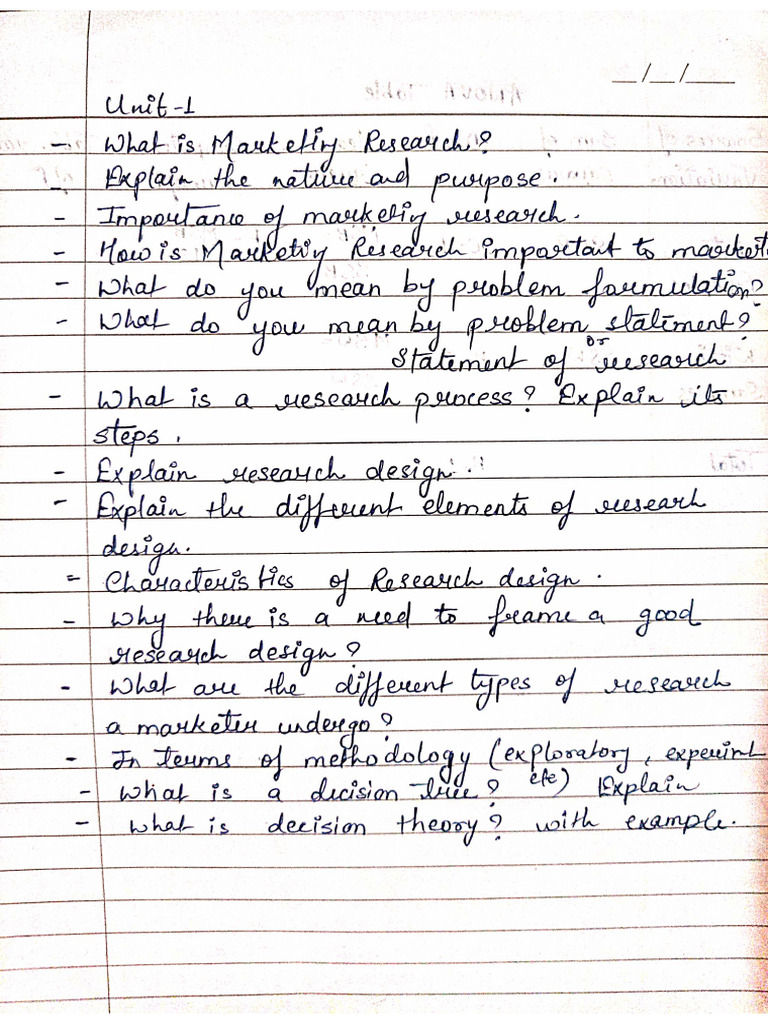 __/__/____
Unit-1
- What is Marketing Research?
- Explain the nature and purpose.
- Importance of marketing research.
- How is Marketing Research important to market
- What do you mean by problem formulation?
- What do you mean by problem statement?
or
Statement of research
- What is a research process? Explain its
steps.
- Explain research design.
- Explain the different elements of research
design.
= Characteristics of Research design.
- Why there is a need to frame a good
research design?
- What are the different types of research
a marketer undergo?
- In terms of methodology (exploratory, experint
etc)
- What is a decision tree? Explain
- What is decision theory? with example.